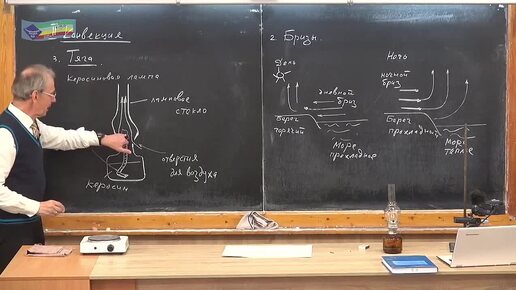 Конвекция
3. Тяга
Керосиновая лампа
ламповое
стекло
отверстия
для воздуха
керосин
2. Бризы.
День
дневной
бриз
Берег
горячий
Море
прохладное
Ночь
ночной
бриз
Берег
прохладный
Море
теплое